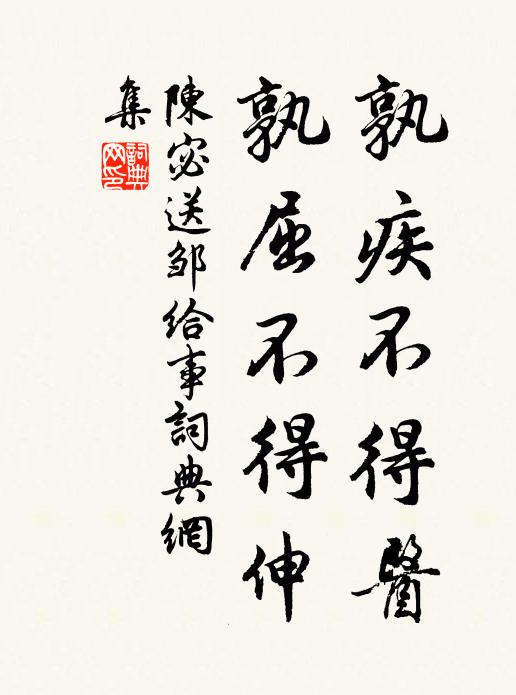 孰疾不得醫
孰屈不得伸
陳宓送邹給事詞典網
集
詞典網印